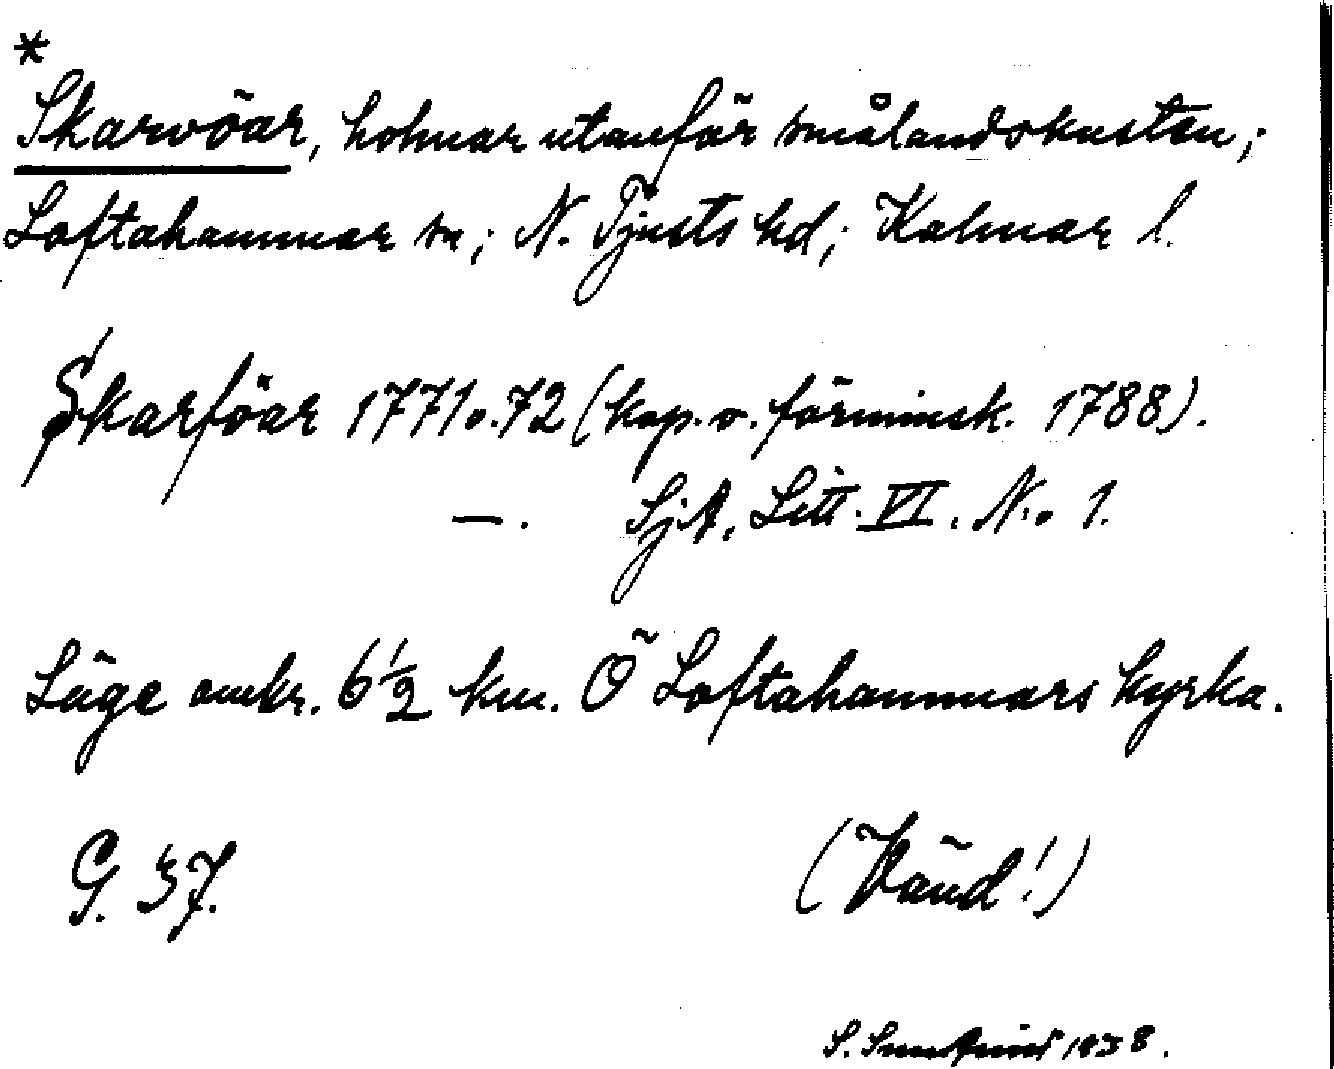 *
Skarvöar, holmar utanför smålandskusten;
Loftahammar sn; N. Tjusts hd; Kalmar l.
Skarföar 1771 o. 72 (kop. o. förminsk. 1788).
—. SjA, Litt. VI. N:o 1.
Läge omkr. 6 1/2 km. Ö Loftahammars kyrka.
G. 37.
(Vänd!)
S. 1938.